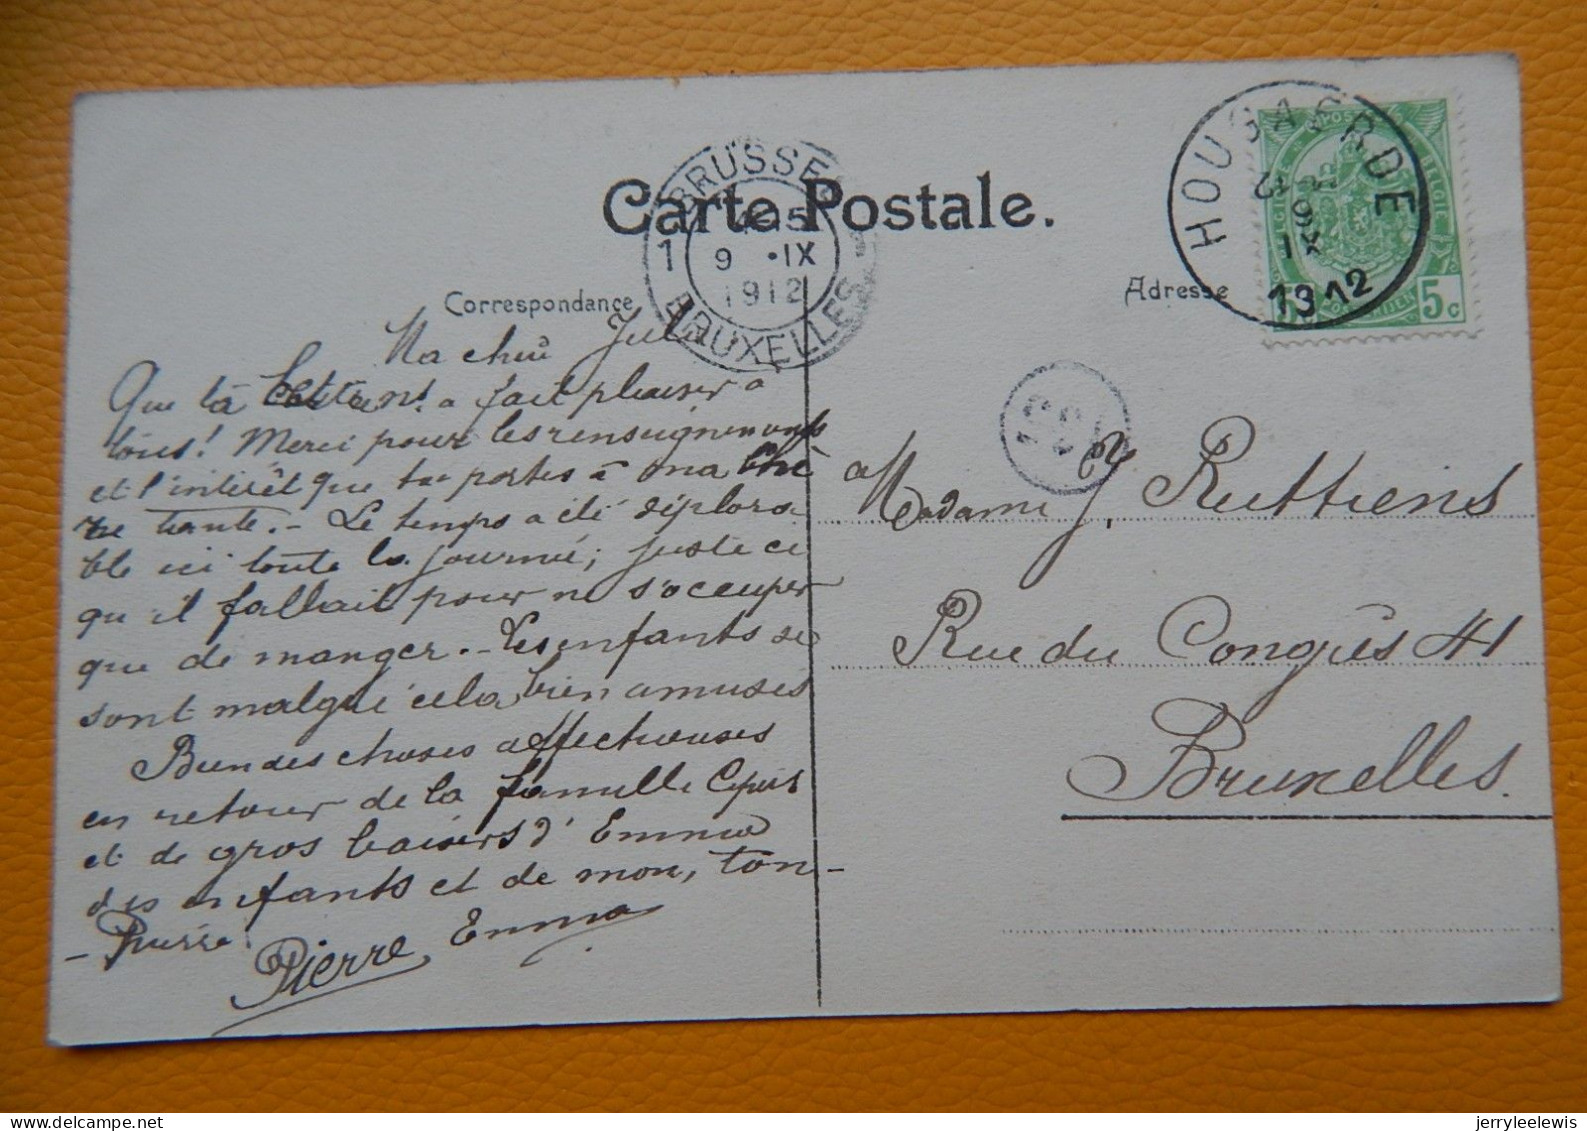 Carte Postale.
BRUSSEL
15
1
9 ·IX
1912
BRUXELLES
HOUGAERDE
9
IX
1912
BELGIE
5c
Correspondance
Adresse
Ma chère Julia
Que ta lettre nous a fait plaisir à
tous! Merci pour les renseignements
et l'intérêt que tu portes à ma chè
re tante. - Le temps a été déplora-
ble ici toute la journée; juste ce
qu'il fallait pour ne s'occuper
que de manger. - Les enfants se
sont malgré cela bien amusés
Bien des choses affectueuses
en retour de la famille
et de gros baisers d'Emma
des enfants et de moi, ton -
- Pierre
Pierre Emma
à Madame J. Ruttiens
Rue du Congrès 41
Bruxelles.
jerryleelewis